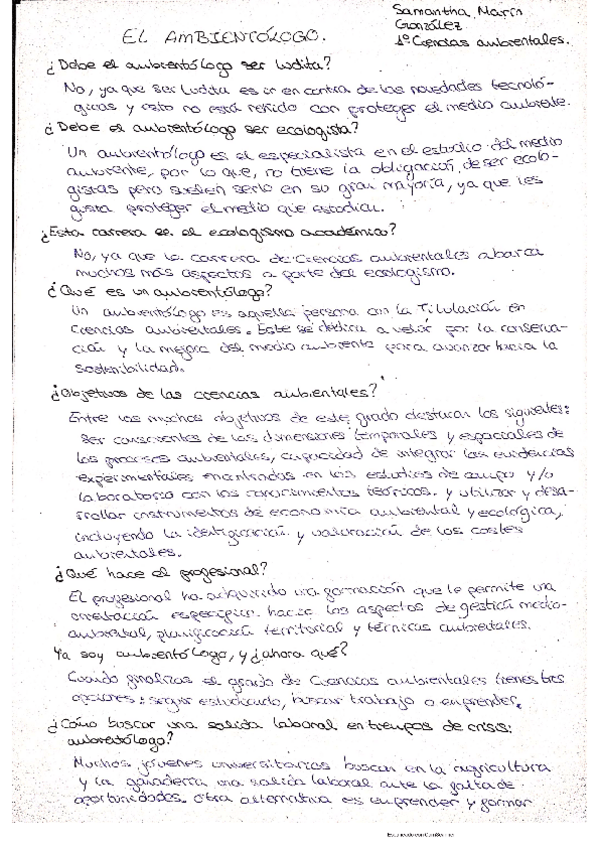 Samantha Marín
González
1º Ciencias ambientales.
EL AMBIENTÓLOGO.
¿Debe el ambientólogo ser ludita?
No, ya que ser ludita es ir en contra de las novedades tecnoló-
gicas y esto no está reñido con proteger el medio ambiente.
¿Debe el ambientólogo ser ecologista?
Un ambientólogo es el especialista en el estudio del medio
ambiente, por lo que, no tiene la obligación de ser ecolo-
gistas pero suelen serlo en su gran mayoría, ya que les
gusta proteger el medio que estudian.
¿Esta carrera es el ecologismo académico?
No, ya que la carrera de Ciencias ambientales abarca
muchos más aspectos a parte del ecologismo.
¿Qué es un ambientólogo?
Un ambientólogo es aquella persona con la Titulación en
Ciencias ambientales. Este se dedica a velar por la conserva-
ción y la mejora del medio ambiente para avanzar hacia la
sostenibilidad.
¿Objetivos de las ciencias ambientales?
Entre los muchos objetivos de este grado destacan los siguientes:
Ser conscientes de las dimensiones temporales y espaciales de
los procesos ambientales, capacidad de integrar las evidencias
experimentales encontradas en los estudios de campo y/o
laboratorio con los conocimientos teóricos. y utilizar y desa-
rrollar instrumentos de economía ambiental y ecológica,
incluyendo la identificación y valoración de los costes
ambientales.
¿Qué hace el profesional?
El profesional ha adquirido una formación que le permite una
orientación específica hacia los aspectos de gestión medio-
ambiental, planificación territorial y técnicas ambientales.
Ya soy ambientólogo, y ¿ahora qué?
Cuando finalizas el grado de Ciencias ambientales tienes tres
opciones: seguir estudiando, buscar trabajo o emprender.
¿Cómo buscar una salida laboral en tiempos de crisis:
ambientólogo?
Muchos jóvenes universitarios buscan en la agricultura
y la ganadería una salida laboral ante la falta de
oportunidades. Otra alternativa es emprender y formar
Escaneado con CamScanner